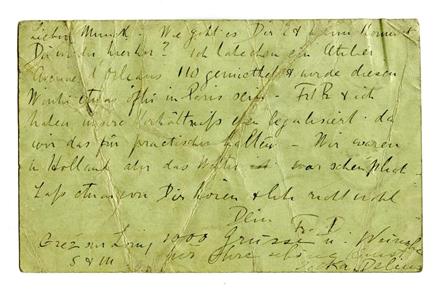 Lieber Munch - Wie geht es Dir & wann kommst
Du wieder hierher? Ich habe hier ein Atelier
Avenue d'Orleans 110 gemiethet & werde diesen
Winter etwas öfter in Paris sein - Frl R & ich
haben unsere Verhältniss eben legalisirt - da
wir das für practischer halten - Wir waren
in Holland aber das Wetter war scheusslich -
Lass etwas von Dir hören & lebe recht wohl
Dein Fr. D
Grez sur Loing 1000 Grüsse u. Wünsche
S & M
Jelka Delius